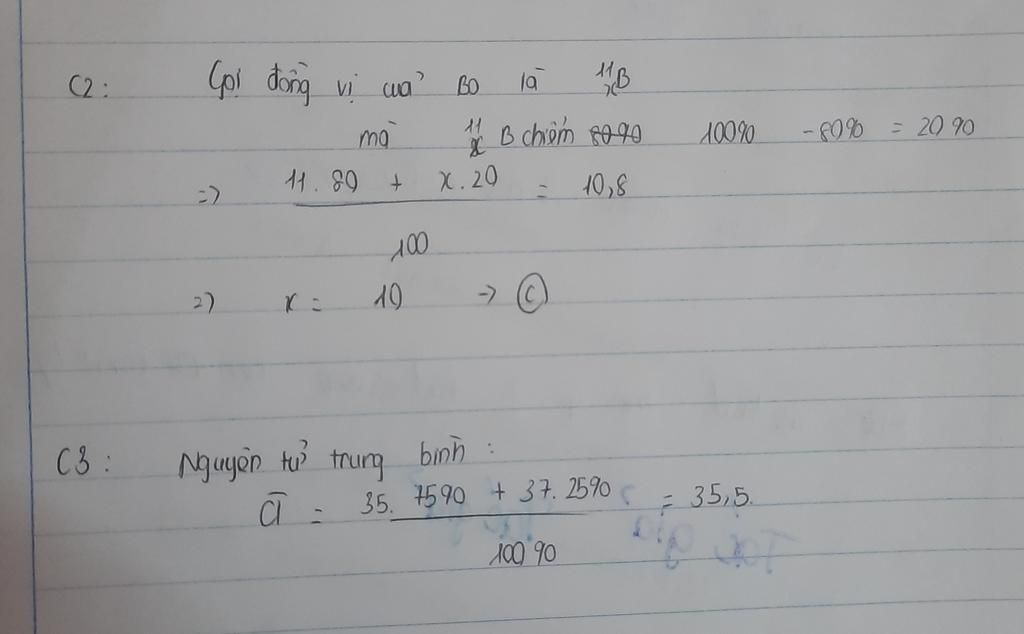 C2: Gọi đồng vị của Bo là ¹¹ₓB
mà ¹¹ₓB chiếm 80% 100% - 80% = 20%
=> 11.80 + x.20 = 10,8
100
=> x = 10 -> C
C3: Nguyên tử trung bình:
C̅l̅ = 35.75% + 37.25% = 35,5.
100%